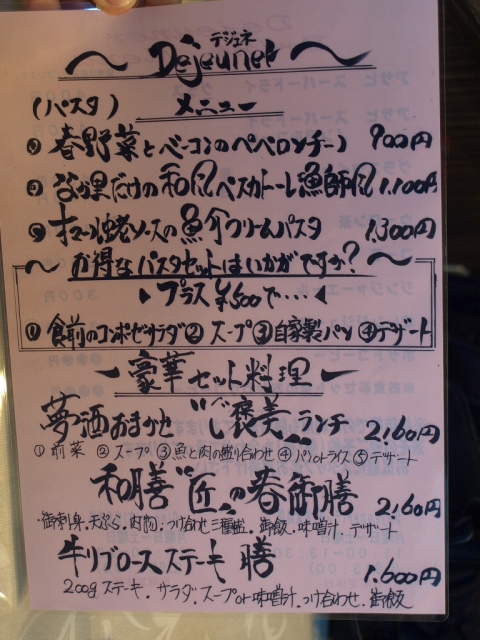 デジュネ
〜 Dejeuner 〜
(パスタ) メニュー
① 春野菜とベーコンのペペロンチーノ 900円
② なか里だけの和風ペスカトーレ漁師風 1.100円
③ オマール蛯ソースの魚介クリームパスタ 1.300円
〜 お得なパスタセットはいかがですか? 〜
▶ プラス ¥500で… ◀
① 食前のコンポゼサラダ ② スープ ③ 自家製パン ④ デザート
豪華セット料理
夢酒おまかせ "ご褒美" ランチ 2.160円
① 前菜 ② スープ ③ 魚と肉の盛り合わせ ④ パンorライス ⑤ デザート
和膳 "匠" の春御膳 2.160円
・御刺身.天ぷら.肉物.つけ合わせ三種盛.御飯.味噌汁.デザート
牛リブロースステーキ膳 1.600円
200gステーキ.サラダ.スープor味噌汁.つけ合わせ.御飯